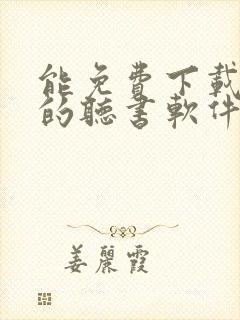 能免費下載
的聽書軟件
姜麗霞